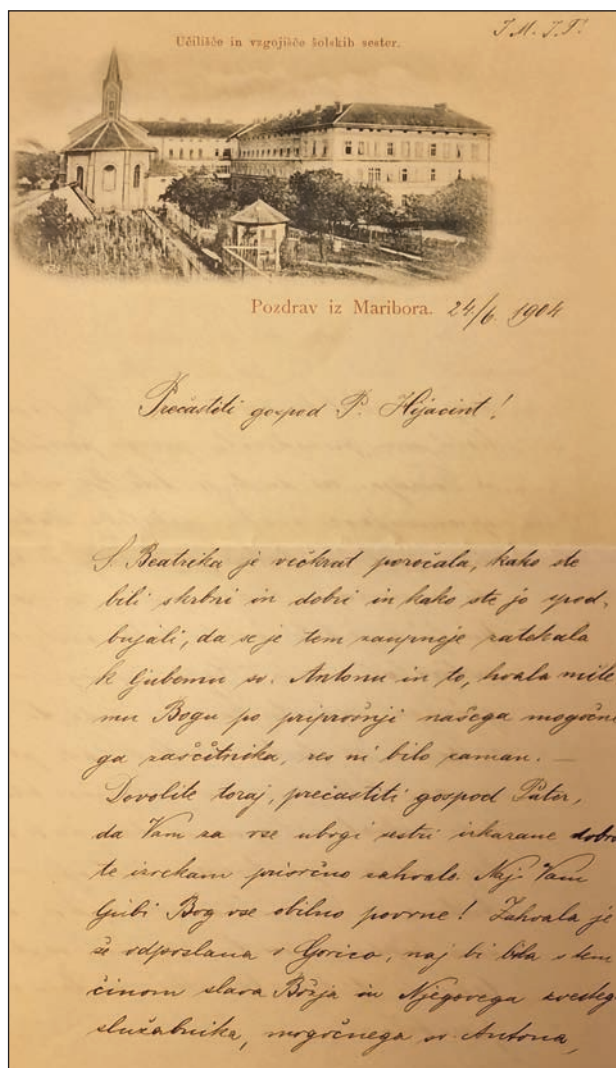 J. M. J. F.
Učilišče in vzgojišče šolskih sester.
Pozdrav iz Maribora. 24/6. 1904
Prečastiti gospod P. Hijacint!
S. Beatrika je večkrat poročala, kako ste
bili skrbni in dobri in kako ste jo spod-
bujali, da se je tem zaupneje zatekala
k ljubemu sv. Antonu in to, hvala mile
mu Bogu po priprošnji našega mogočne
ga zaščitnika, res ni bilo zaman. —
Dovolite toraj, prečastiti gospod Pater,
da Vam za vse ubogi sestri izkazane dobro
te izrekam prisrčno zahvalo. Naj Vam
ljubi Bog vse obilno povrne! Zahvala je
že odposlana v Gorico, naj bi bila s tem
činom slava Božja in Njegovega zvestega
služabnika, mogočnega sv. Antona,